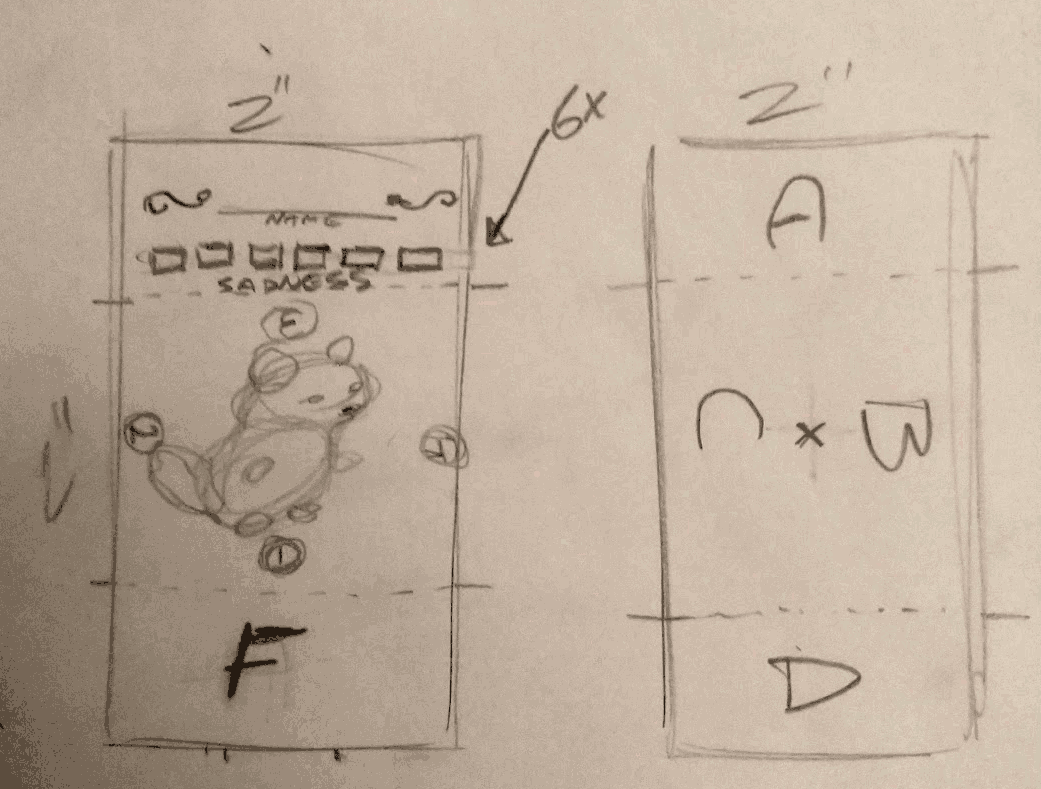 2"
6x
NAME
SADNESS
3
2
4
1
F
2"
A
C x B
D